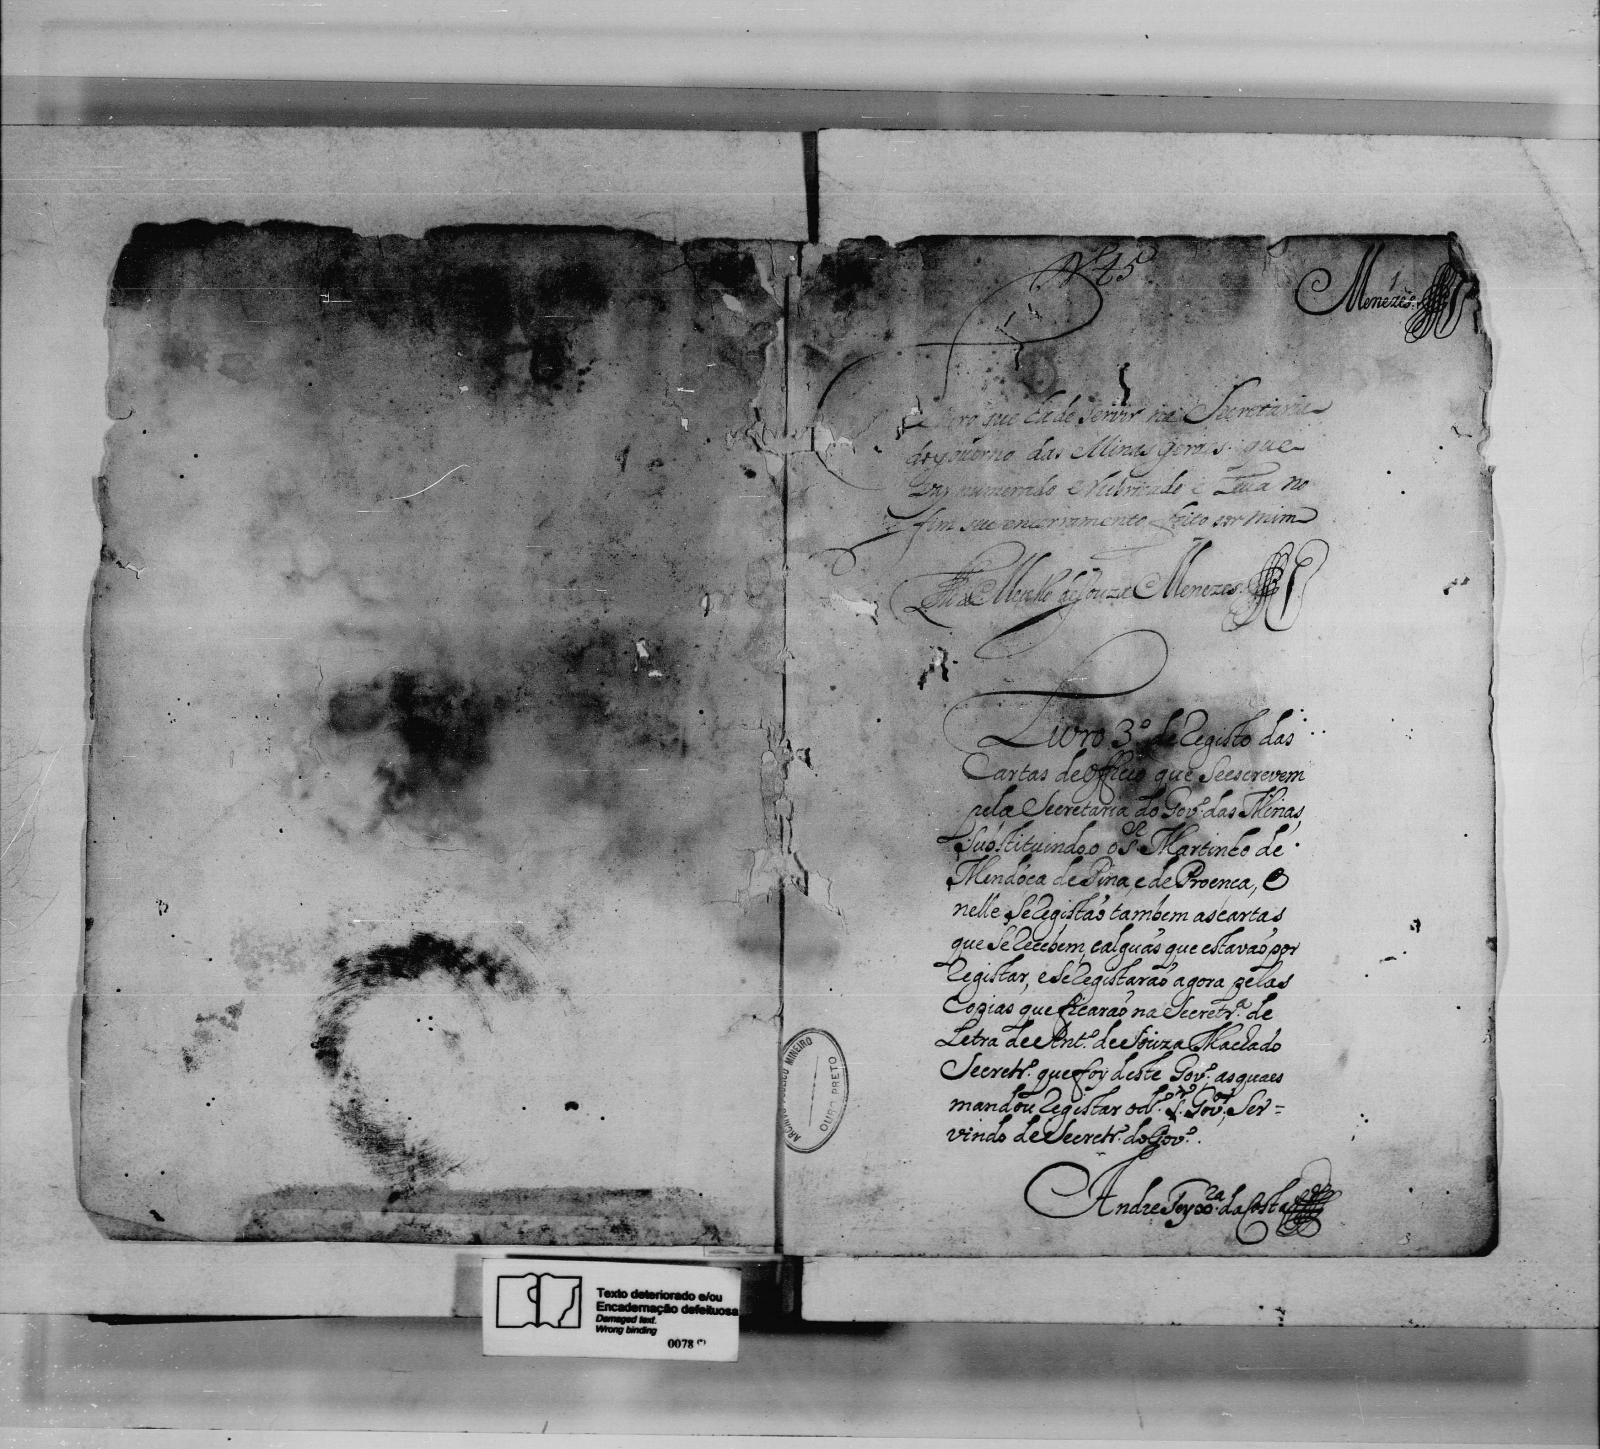 Nº 45
Menezes
Livro que ha de servir na Secretaria
do governo das Minas geraes que
vay numerado e Rubricado e Leva no
fim seu encerramento feito por mim
Mello de Souza Menezes
Livro 3º de Registo das
Cartas de Officio que se escrevem
pela Secretaria do Gov.º das Minas,
Substituindo o Sr Martinho de
Mendóça de Pina, e de Proença, e
nelle se Registão tambem as cartas
que se recebem, e alguãs que estavaõ por
Registar, e se Registaraõ agora pelas
Copias que ficaraõ na Secretr.ª de
Letra de Ant.º de Souza Machado
Secretr.º que foy deste Gov.º, as quaes
mandou Registar o d.º Sr. Gov.or, Ser=
vindo de Secretr.º do Gov.º.
Andre Teyx.ra da Costa
ARCHIVO PUBLICO MINEIRO
OURO PRETO
Texto deteriorado e/ou
Encadernação defeituosa
Damaged text.
Wrong binding
0078